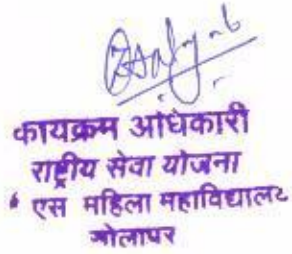 कायक्रम अधिकारी
राष्ट्रीय सेवा योजना
एस महिला महाविद्यालट
गोलापर